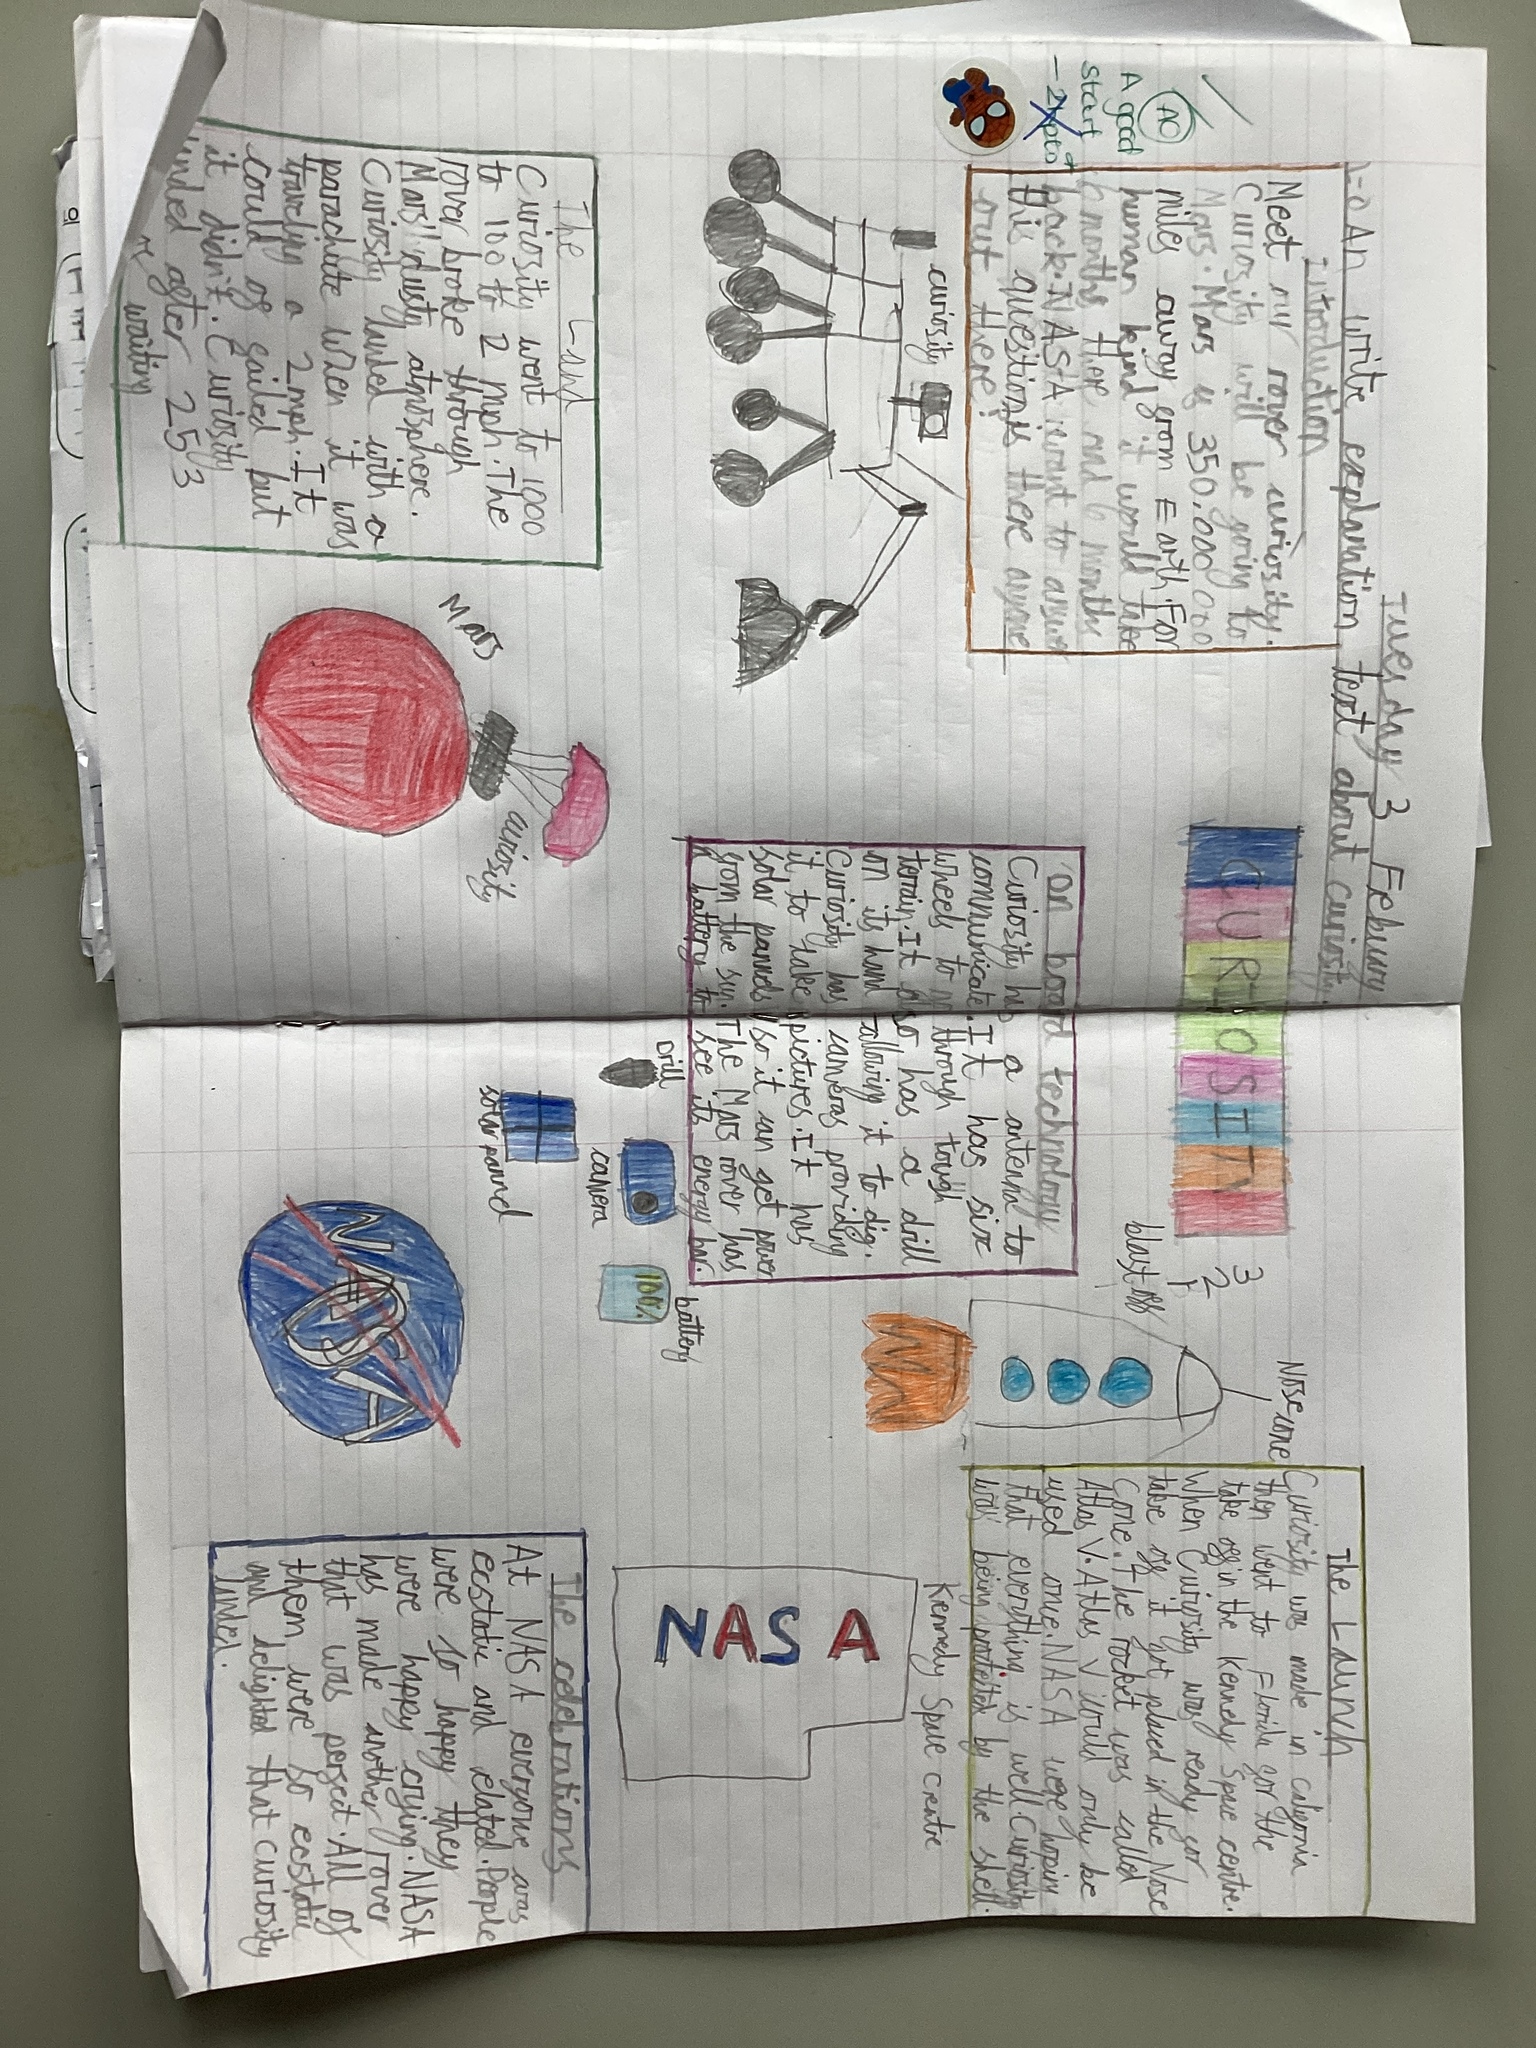 Tuesday 3 Febuary
An write explanation text about curiosity.
AC
A good
start
CURIOSITY
Introduction
Meet our rover curiosity.
Curiosity will be going to
Mars. Mars is 350,000 000
miles away from Earth. For
human kind it would take
6 months there and 6 months
back. NASA want to answer
this question is there anyone
out there?
curiosity
The Land
Curiosity went to 1000
to 100 to 2 mph. The
rover broke through
Mars' dusty atmosphere.
Curiosity landed with a
parachute when it was
traveling a 2mph. It
could of failed but
it didn't. Curiosity
landed after 253
waiting
Mars
curiosity
On board technology
Curiosity has a antenna to
communicate. It has six
wheels to through tough
terrain. It also has a drill
on its hand allowing it to dig.
Curiosity has cameras providing
it to take pictures. It has
solar pannels so it can get power
from the sun. The Mars rover has
a battery to see its energy bar.
Drill
camera
battery
100%
solar pannel
NASA
3
2
1
blast off
Nose cone
The Launch
Curiosity was made in califonin
then went to Florida for the
take off in the Kennedy Space centre.
When Curiosity was ready for
take off it got placed in the Nose
Cone. The rocket was called
Atlas V. Atlas V would only be
used once. NASA were hoping
that everything is well. Curiosity
was being protected by the shell.
Kennedy Space Centre
NASA
The celebrations
At NASA everyone was
ecstatic and elated. People
were so happy they
were happy crying. NASA
has made another rover
that was perfect. All of
them were so ecstatic
and delighted that curiosity
landed.